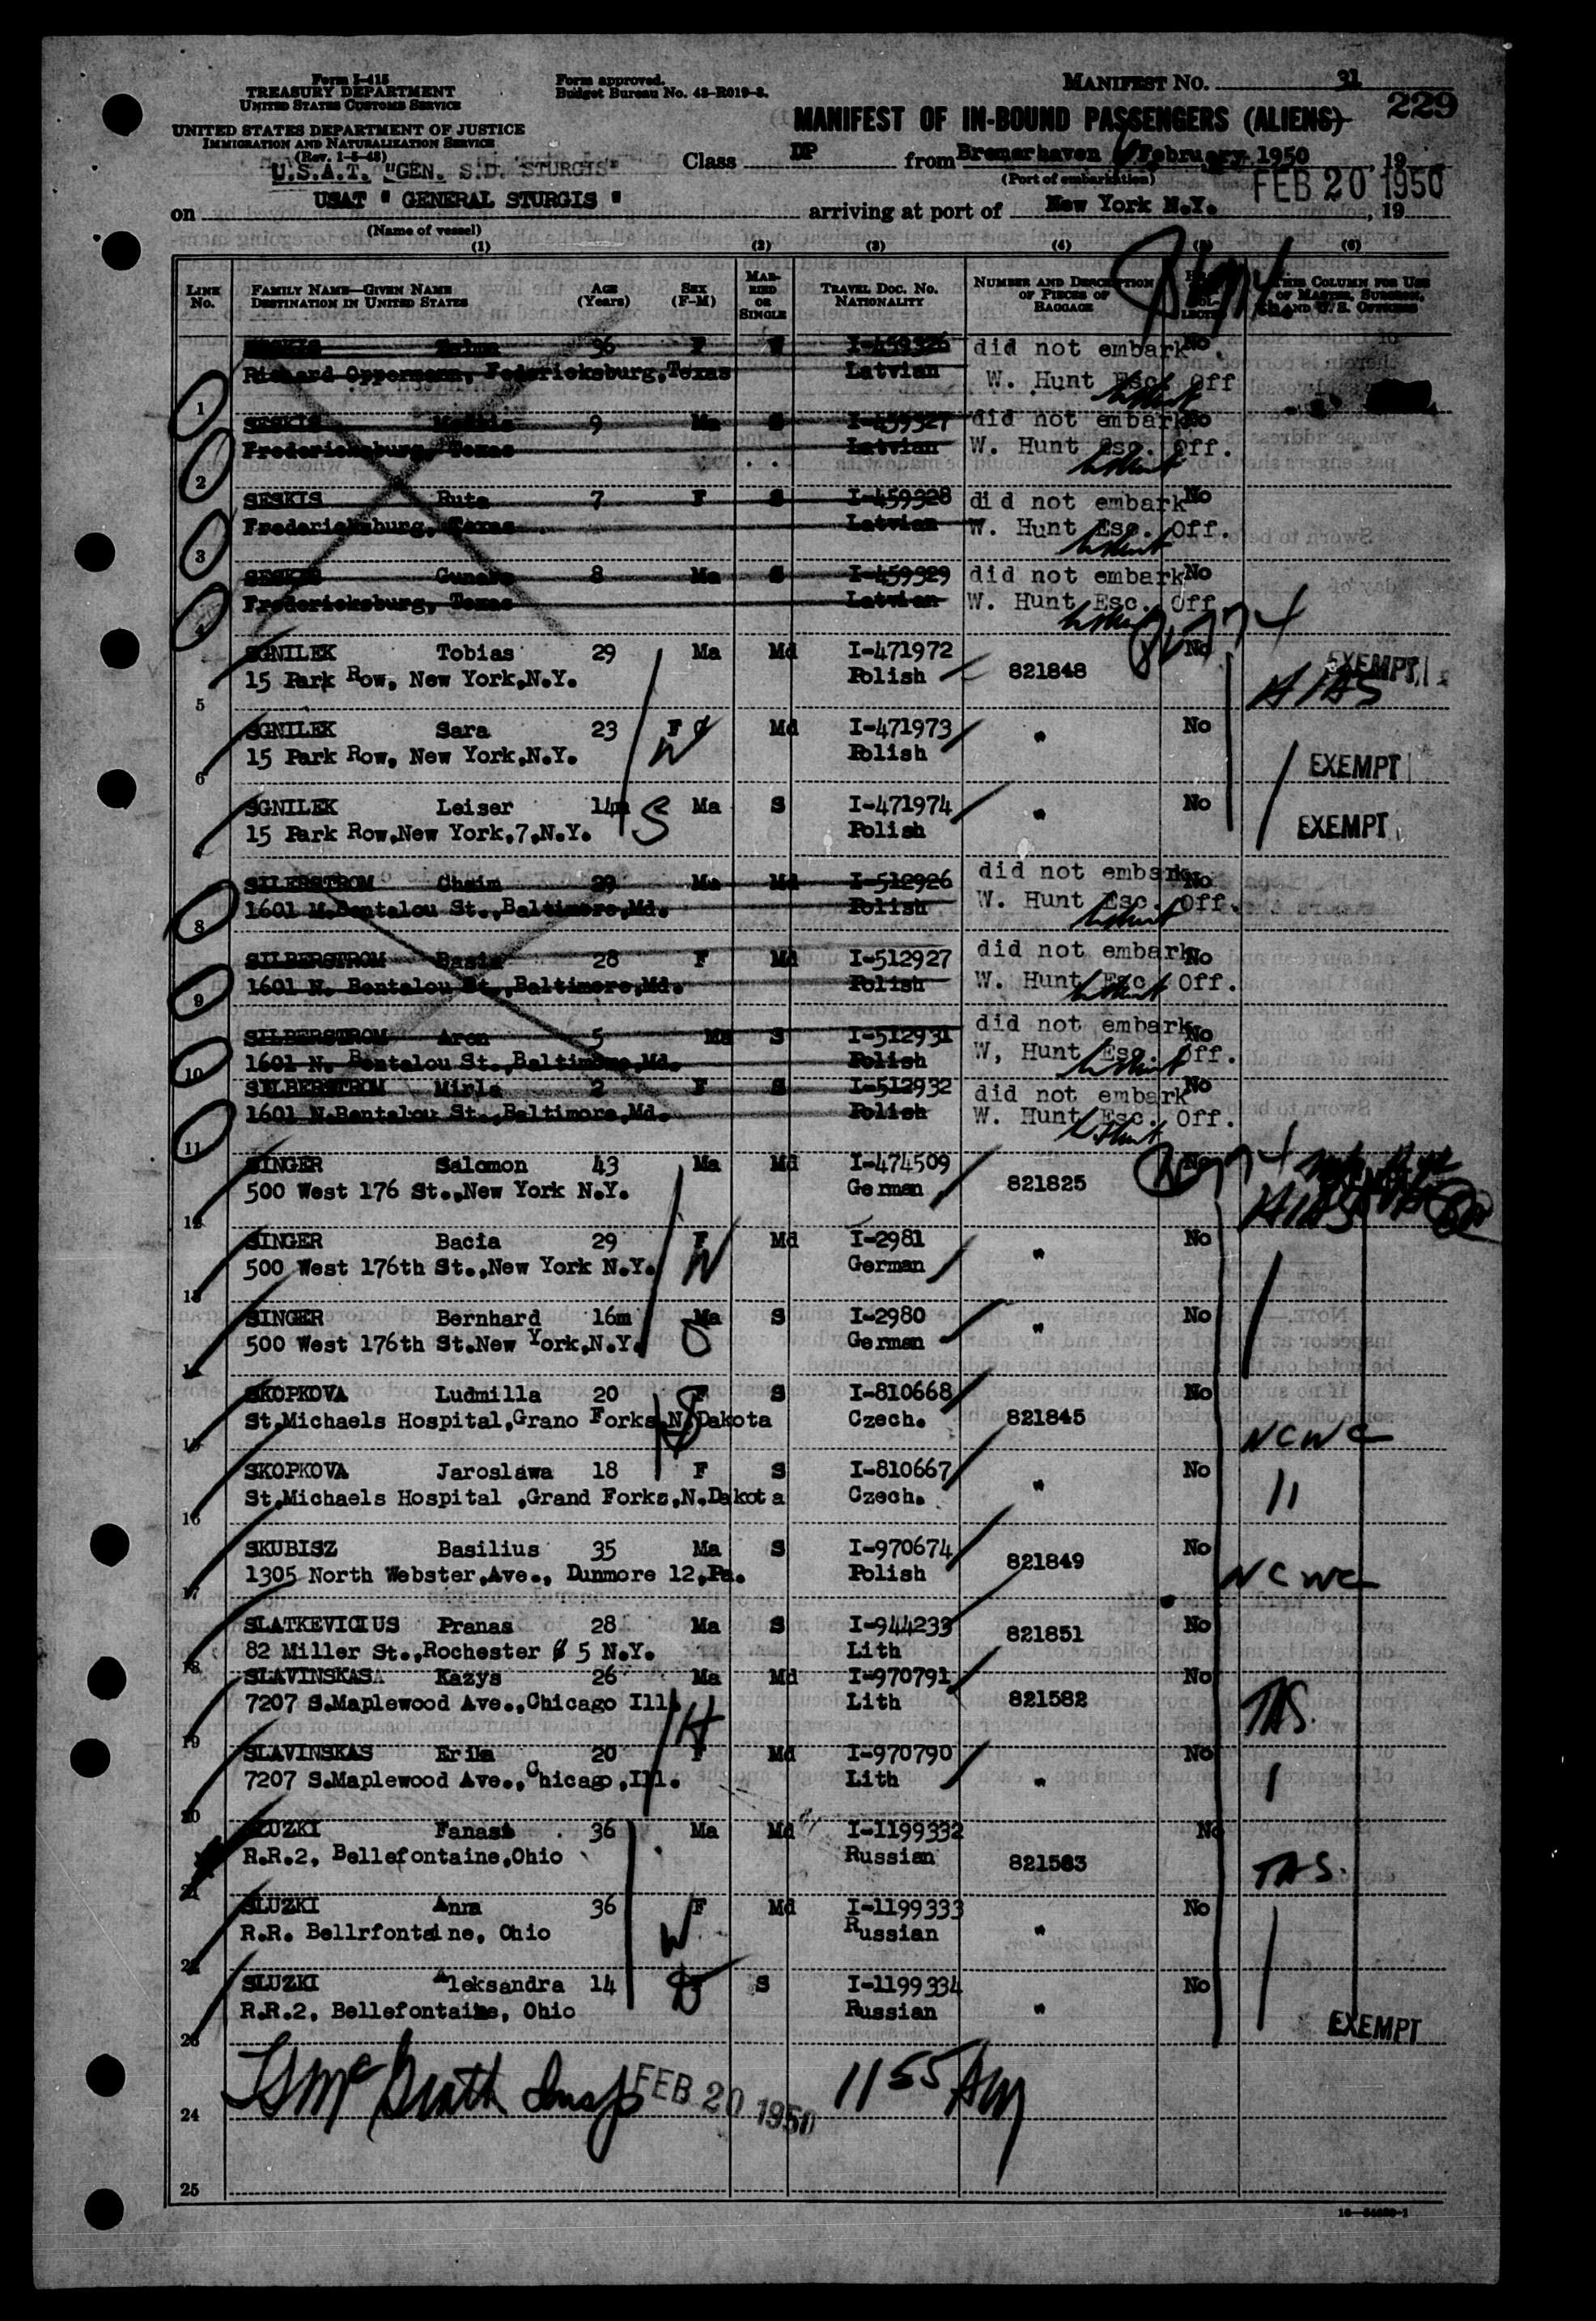 Form I-415
TREASURY DEPARTMENT
UNITED STATES CUSTOMS SERVICE
UNITED STATES DEPARTMENT OF JUSTICE
IMMIGRATION AND NATURALIZATION SERVICE
(Rev. 1-5-48)
Form approved.
Budget Bureau No. 43-R019-3.
MANIFEST NO. 31
229
MANIFEST OF IN-BOUND PASSENGERS (ALIENS)
Class DP from Bremerhaven February 1950, 19
(Port of embarkation)
U.S.A.T. "GEN. S.D. STURGIS"
FEB 20 1950
on USAT " GENERAL STURGIS " arriving at port of New York N.Y., 19
(Name of vessel)
(1) (2) (3) (4) (5) (6)
LINE No. FAMILY NAME—GIVEN NAME DESTINATION IN UNITED STATES AGE (Years) SEX (F-M) MARRIED OR SINGLE TRAVEL DOC. NO. NATIONALITY NUMBER AND DESCRIPTION OF PIECES OF BAGGAGE THIS COLUMN FOR USE OF MASTER, SURGEON, AND U. S. OFFICERS
SESKIS 36 F I-459326 did not embark No
Richard Oppermann, Federicksburg,Texas Latvian W. Hunt Esc. Off
1
SESKIS 9 Ma S I-459327 did not embark No
Fredericksburg, Texas Latvian W. Hunt Esc. Off.
2
SESKIS Ruta 7 F S I-459328 did not embark No
Fredericksburg, Texas Latvian W. Hunt Esc. Off.
3
SESKIS Gunars 8 Ma S I-459329 did not embark No
Fredericksburg, Texas Latvian W. Hunt Esc. Off
4
SGNILEK Tobias 29 Ma Md I-471972 No EXEMPT
15 Park Row, New York,N.Y. Polish 821848 HIAS
5
SGNILEK Sara 23 F Md I-471973 No
15 Park Row, New York,N.Y. W Polish " EXEMPT
6
SGNILEK Leiser 14m S Ma S I-471974 " No
15 Park Row,New York,7,N.Y. Polish EXEMPT
SILERSTROM Chaim 29 Ma Md I-512926 did not embark No
1601 N.Bentalou St.,Baltimore,Md. Polish W. Hunt Esc. Off.
8
SILBERSTROM Basia 28 F Md I-512927 did not embark No
1601 N. Bentalou St.,Baltimore,Md. Polish W. Hunt Esc. Off.
9
SILBERSTROM Aron 5 Ma S I-512931 did not embark No
1601 N. Bentalou St.,Baltimore,Md. Polish W, Hunt Esc. Off.
10
SILBERSTROM Mirla 2 F S I-512932 did not embark No
1601 N.Bentalou St.,Baltimore,Md. Polish W. Hunt Esc. Off.
11
SINGER Salomon 43 Ma Md I-474509
500 West 176 St.,New York N.Y. German 821825 HIAS
12
SINGER Bacia 29 F Md I-2981 No
500 West 176th St.,New York N.Y. W German "
13
SINGER Bernhard 16m Ma S I-2980 No
500 West 176th St.New York,N.Y. German "
SKOPKOVA Ludmilla 20 F S I-810668 No
St,Michaels Hospital,Grano Forks,N.Dakota Czech. 821845 NCWC
15
SKOPKOVA Jaroslawa 18 F S I-810667 No
St,Michaels Hospital ,Grand Forks,N.Dakota Czech. " 11
16
SKUBISZ Basilius 35 Ma S I-970674 No
1305 North Webster,Ave., Dunmore 12,Pa. Polish 821849 NCWC
17
SLATKEVICIUS Pranas 28 Ma S I-944233 No
82 Miller St.,Rochester 5 N.Y. Lith 821851
18
SLAVINSKASA Kazys 26 Ma Md I-970791 No
7207 S.Maplewood Ave.,Chicago Ill. Lith 821582
19
SLAVINSKAS Erika 20 F Md I-970790 No
7207 S.Maplewood Ave.,Chicago,Ill. Lith "
20
SLUZKI Fanasi 36 Ma Md I-1199332 No
R.R.2, Bellefontaine,Ohio Russian 821583
21
SLUZKI Anna 36 F Md I-1199333 No
R.R. Bellrfontaine, Ohio W Russian "
22
SLUZKI Aleksandra 14 S I-1199334 No
R.R.2, Bellefontaine, Ohio Russian " EXEMPT
23
FEB 20 1950 1155 AM
24
25